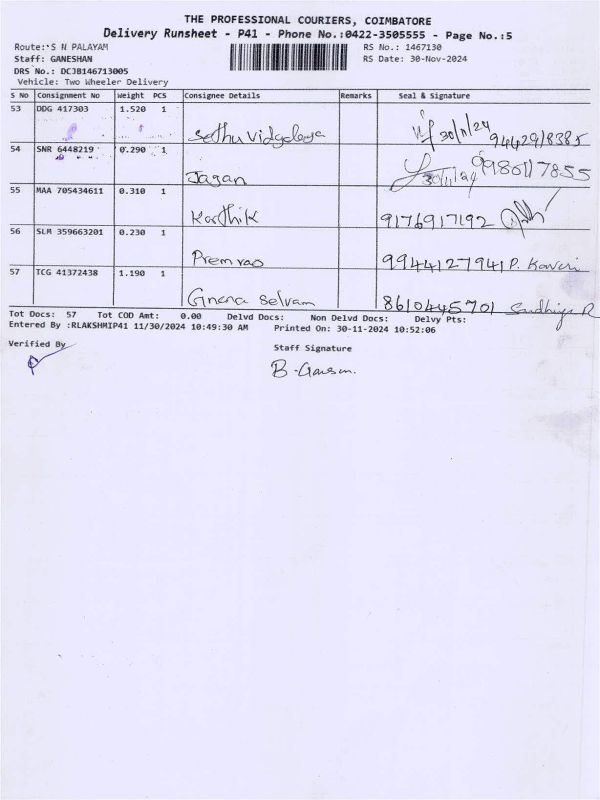 THE PROFESSIONAL COURIERS, COIMBATORE
Delivery Runsheet - P41 - Phone No.:0422-3505555 - Page No.:5
Route: S N PALAYAM RS No.: 1467130
Staff: GANESHAN RS Date: 30-Nov-2024
DRS No.: DCJB146713005
Vehicle: Two Wheeler Delivery
S No Consignment No Weight PCS Consignee Details Remarks Seal & Signature
53 DDG 417303 1.520 1
Sethu Vidyalaya 30/11/24 9442918385
54 SNR 6448219 0.290 1
Jagan 30/11/24
55 MAA 705434611 0.310 1
Karthik 9176917192
56 SLM 359663201 0.230 1
Prem rao 9944127941 P. Kaveri
57 TCG 41372438 1.190 1
Gnena Selvam 8610445701 Sandhiya R
Tot Docs: 57 Tot COD Amt: 0.00 Delvd Docs: Non Delvd Docs: Delvy Pts:
Entered By :RLAKSHMIP41 11/30/2024 10:49:30 AM Printed On: 30-11-2024 10:52:06
Verified By Staff Signature